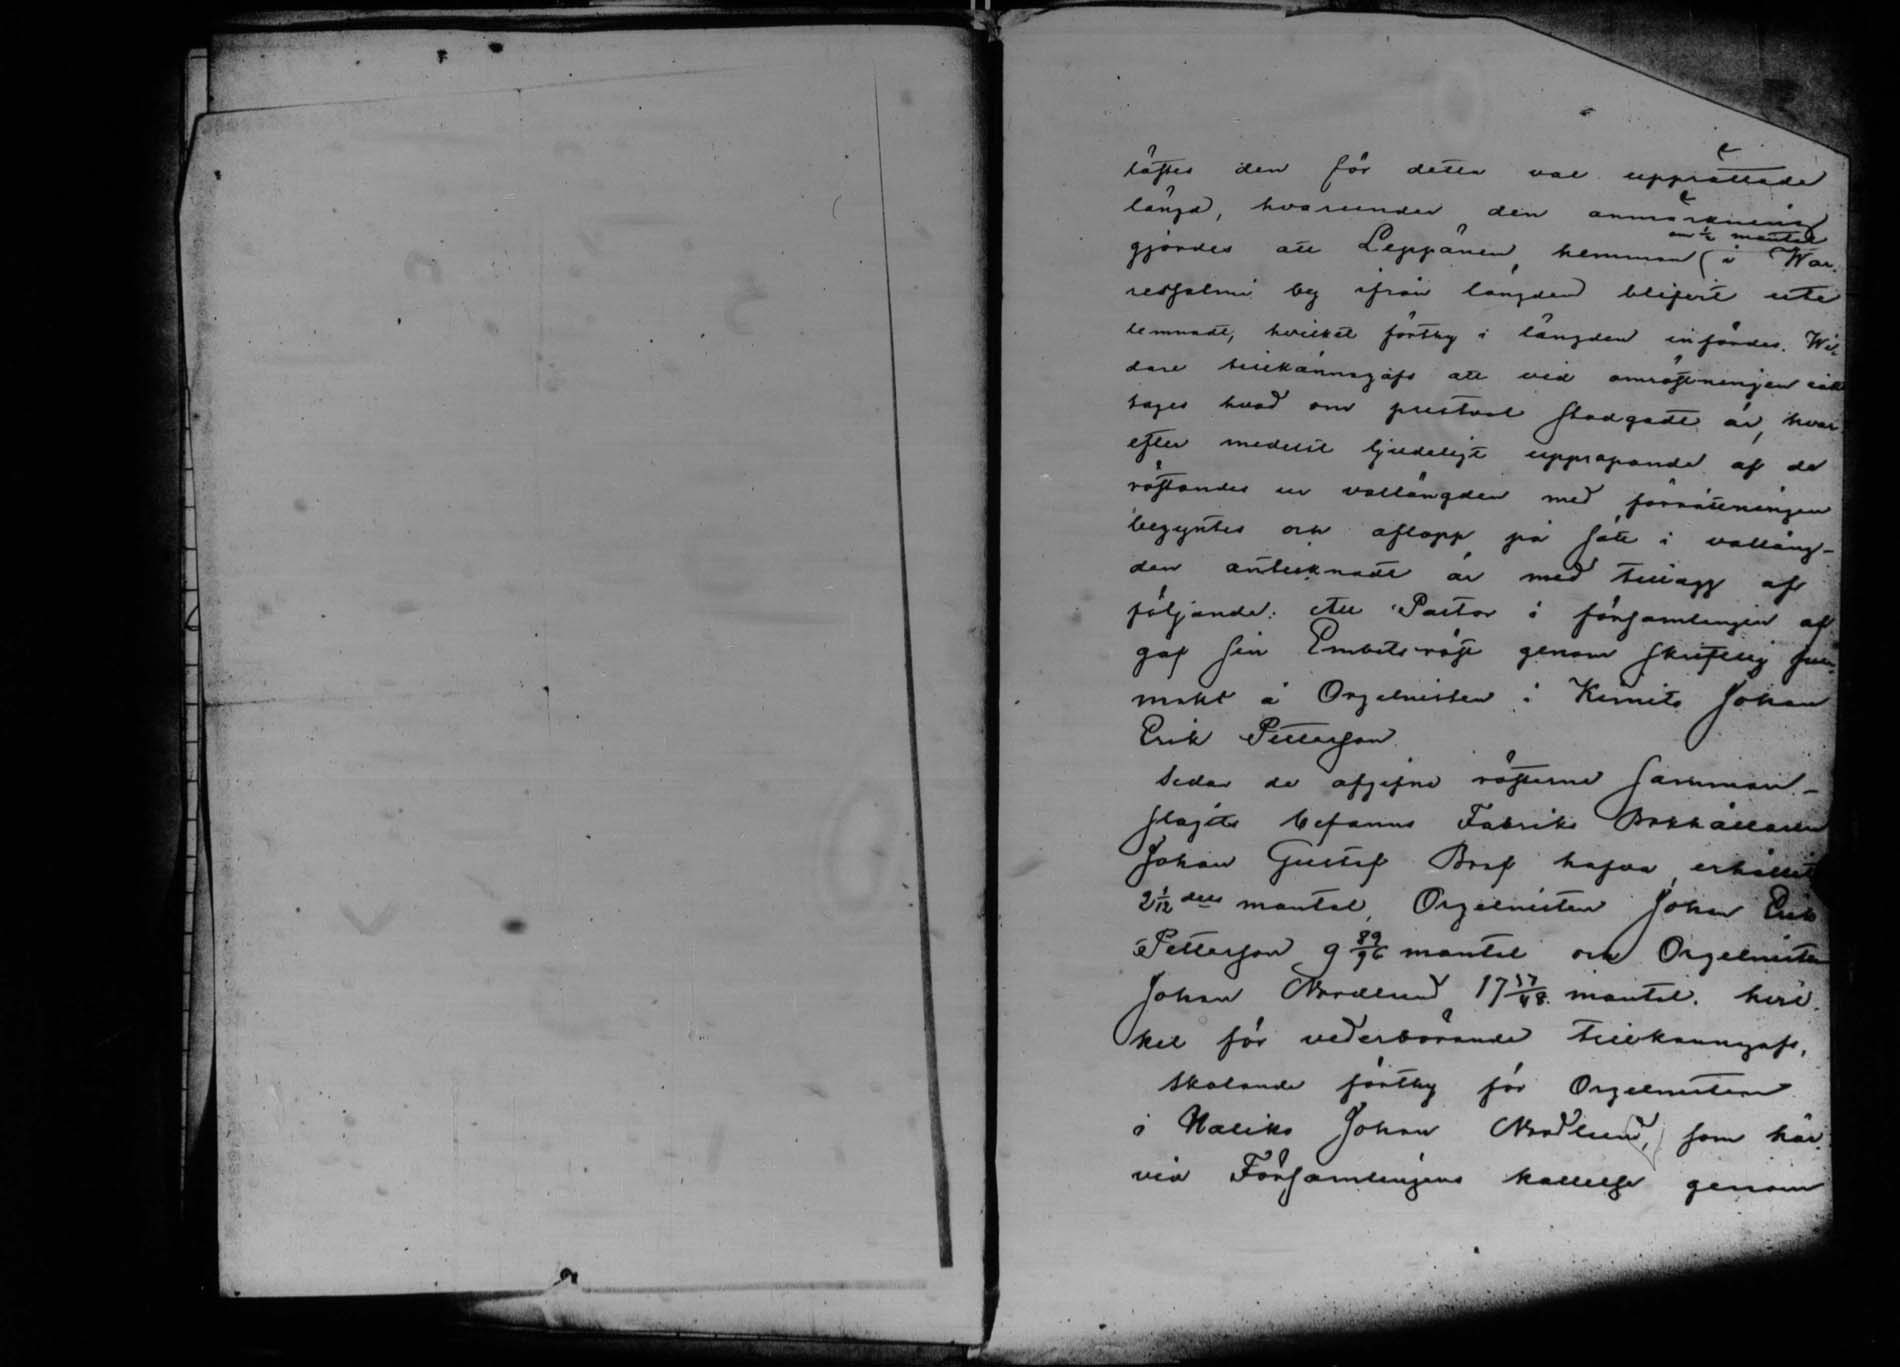 lästes den för detta val upprättade
längd, hvarunder den anmärkning
om 1/2 mantal
gjordes att Leppänen hemman i War-
resfalmi by ifrån längden blifvit ute
lemnadt, hvilket förthy i längden infördes. Wi-
dare tillkännagafs att vid omröstningen iakt
tages hvad om prestval stadgadt är, hvar
efter medelst ljudeligt uppropande af de
röstandes ur vallängden med förrättningen
begyntes och aflopp på sätt i valläng-
den antecknadt är med tillägg af
följande: att Pastor i församlingen af
gaf sin Embetsröst genom skriftlig full-
makt å Orgelnisten i Kimito Johan
Erik Petterson.
Sedan de afgifne rösterne samman-
slagits befanns Fabriks Bokhållaren
Johan Gustaf Braf hafva erhållit
2 1/12 dels mantal, Orgelnisten Johan Erik
Petterson 9 89/96 mantal och Orgelnisten
Johan Nordlund 17 37/48 mantal. hvil-
ket för vederbörande tillkännagafs,
skolande förthy för Orgelnisten
i Haliko Johan Nordlund, som här
vid Församlingens kallelse genom